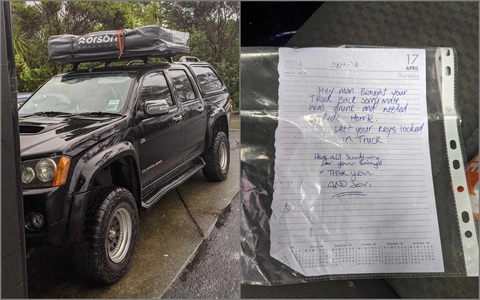 Orson
2014
17
APRIL
Thursday
Hey man Brought your
Truck Back sorry mate
Was drunk and needed
Ride Home
Left your keys locked
in Truck
for your
THANK you
AND Sori